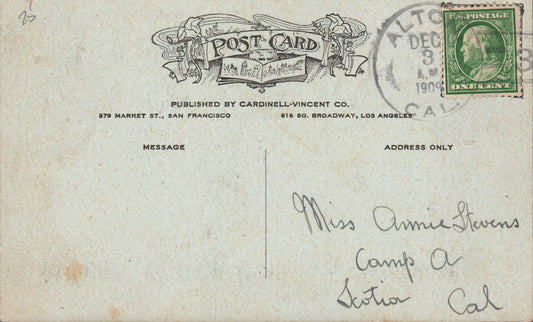 25
POST CARD
PUBLISHED BY CARDINELL-VINCENT CO.
579 MARKET ST., SAN FRANCISCO 616 SO. BROADWAY, LOS ANGELES
MESSAGE
ADDRESS ONLY
ALTO
DEC
3
A.M.
1909
CAL.
U.S. POSTAGE
ONE CENT
3
Miss Annie Stevens
Camp A
Scotia Cal